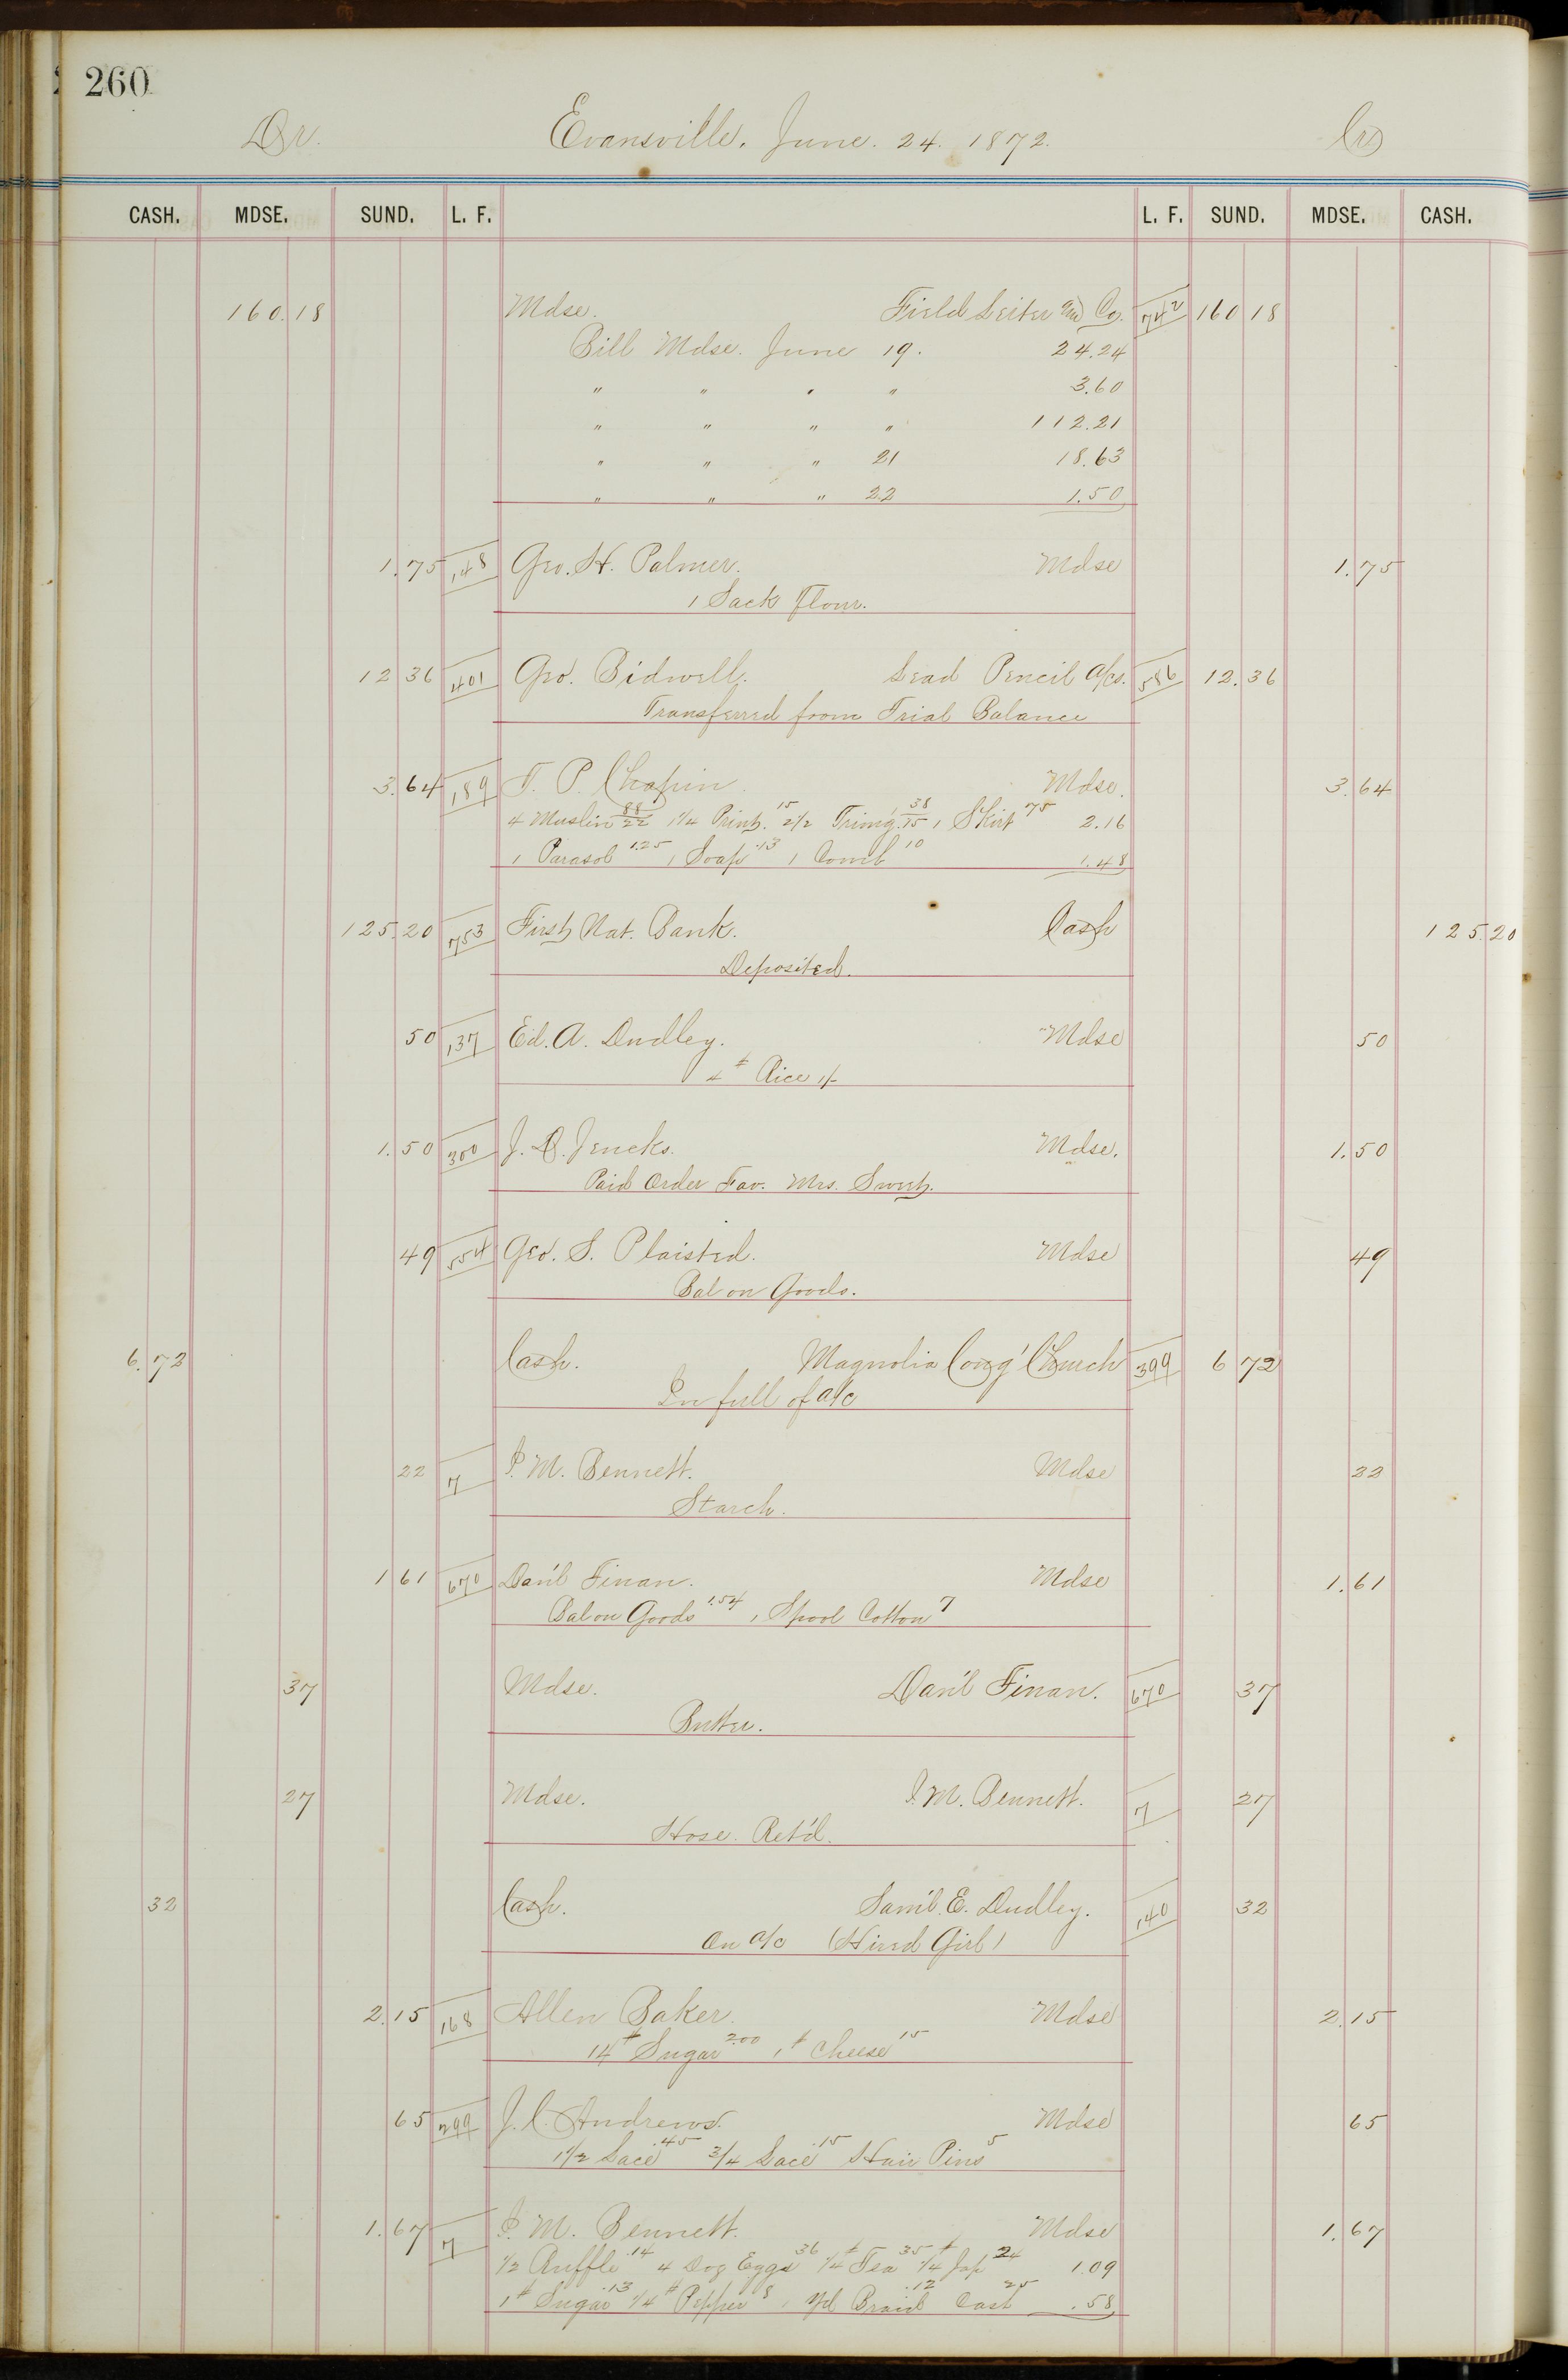 260
Dr. Evansville, June. 24. 1872. Cr
CASH. MDSE. SUND. L. F. L. F. SUND. MDSE. CASH.
160.18 Mdse. Field Leiter and Co. 742 160 18
Bill Mdse. June 19. 24.24
" " " " 3.60
" " " " 112.21
" " " 21 18.63
" " " 22 1.50
1.75 148 Geo. H. Palmer. Mdse 1.75
1 Sack Flour.
12 36 401 Geo. Bidwell. Lead Pencil a/cs. 586 12.36
Transferred from Trial Balance
3.64 189 T. P. Chapin. Mdse. 3.64
4 Muslin 88/22 1 1/4 Print. 15 2 1/2 Trimg. 38/15 1 Skirt 75 2.16
1 Parasol 1.25 1 Soap .13 1 Comb 10 1.48
125.20 753 First Nat. Bank. Cash 125.20
Deposited.
50 137 Ed. A. Dudley. Mdse 50
4# Rice 1/-
1.50 300 J. D. Jencks. Mdse. 1.50
Paid Order Fav. Mrs.
49 554 Geo. S. Plaisted. Mdse 49
Bal on Goods.
6.72 Cash. Magnolia Cong' Church 399 6 72
In full of a/c
22 7 I. M. Bennett. Mdse 22
Starch.
1 61 670 Dan'l Finan. Mdse 1.61
Bal on Goods 1.54 1 Spool Cotton 7
37 Mdse. Dan'l Finan. 670 37
Butter.
27 Mdse. I. M. Bennett. 7 27
Hose. Ret'd.
32 Cash. Sam'l. E. Dudley. 140 32
On a/c (Hired Girl)
2.15 168 Allen Baker. Mdse 2.15
14# Sugar 2.00 1# Cheese 15
65 299 J. C. Andrews. Mdse 65
1 1/2 Lace .45 3/4 Lace .15 Hair Pins 5
1.67 7 I. M. Bennett. Mdse 1.67
1/2 Ruffle .14 4 Doz Eggs 36 1/4# Tea 35 1/4# Jap 24 1.09
1# Sugar .13 1/4# Pepper 8 1 yd Braid .12 Cash 25 .58